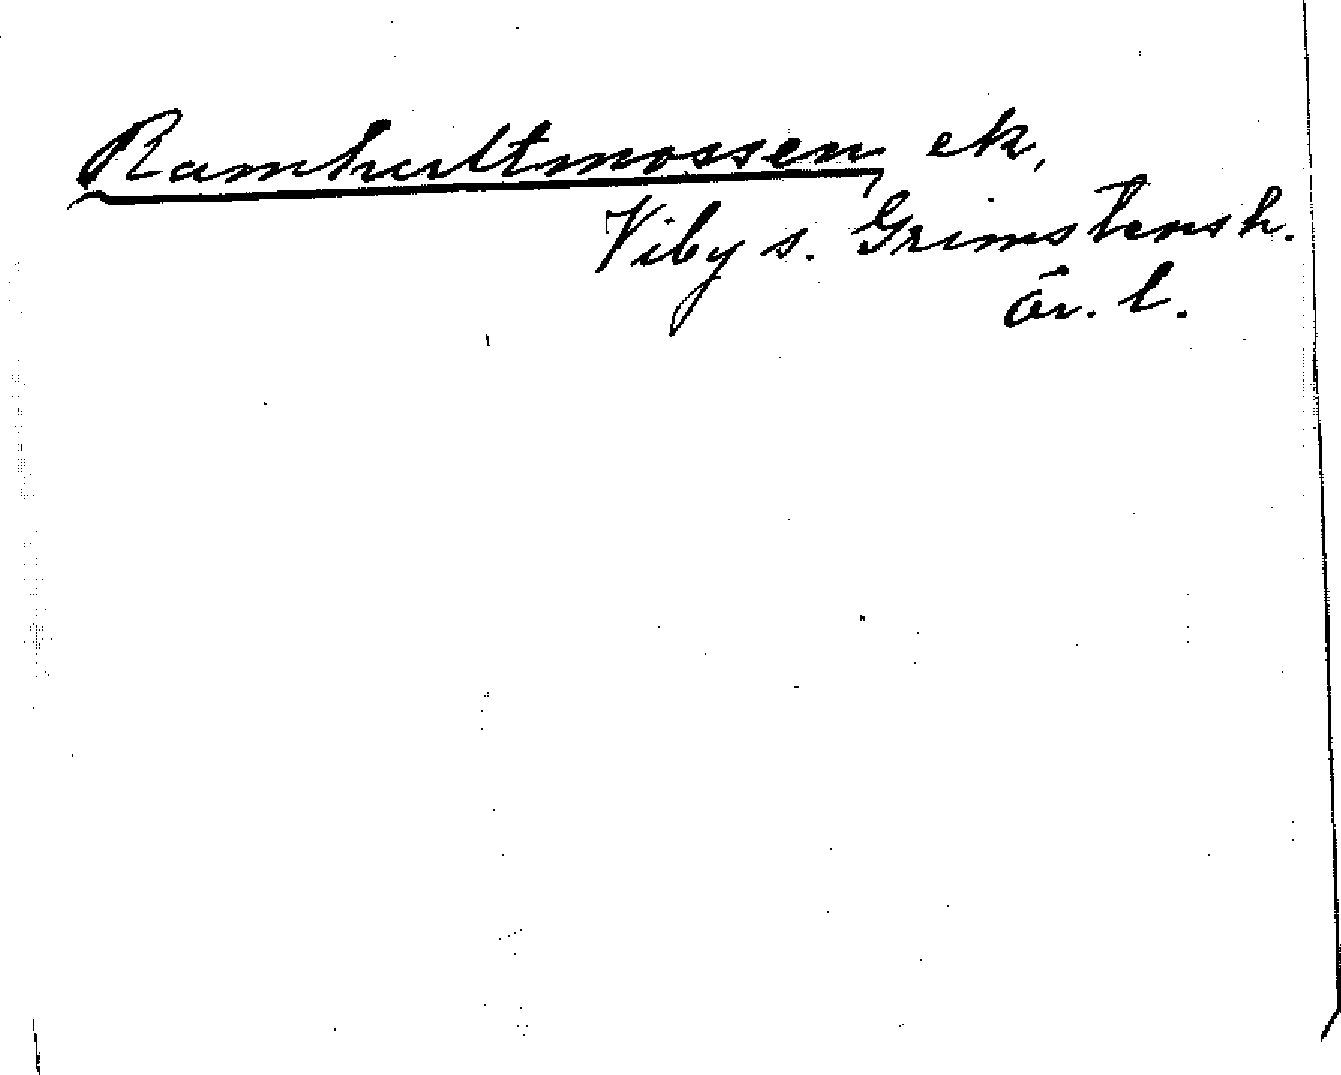 Ramhultmossen, ek,
Viby s. Grimstensh.
Ör. l.